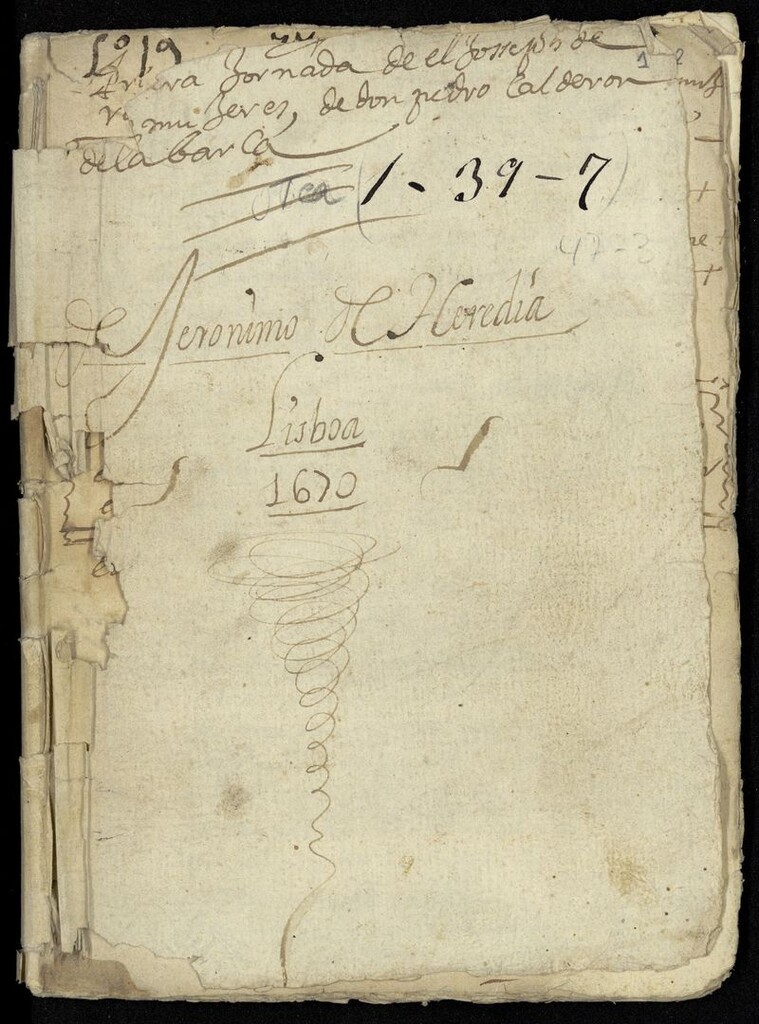 Jornada de el Joseph de
mujeres, de don pedro Calderon
de la barca
Tea 1-39-7
47-3
1
2
De Jeronimo de Heredia
Lisboa
1670